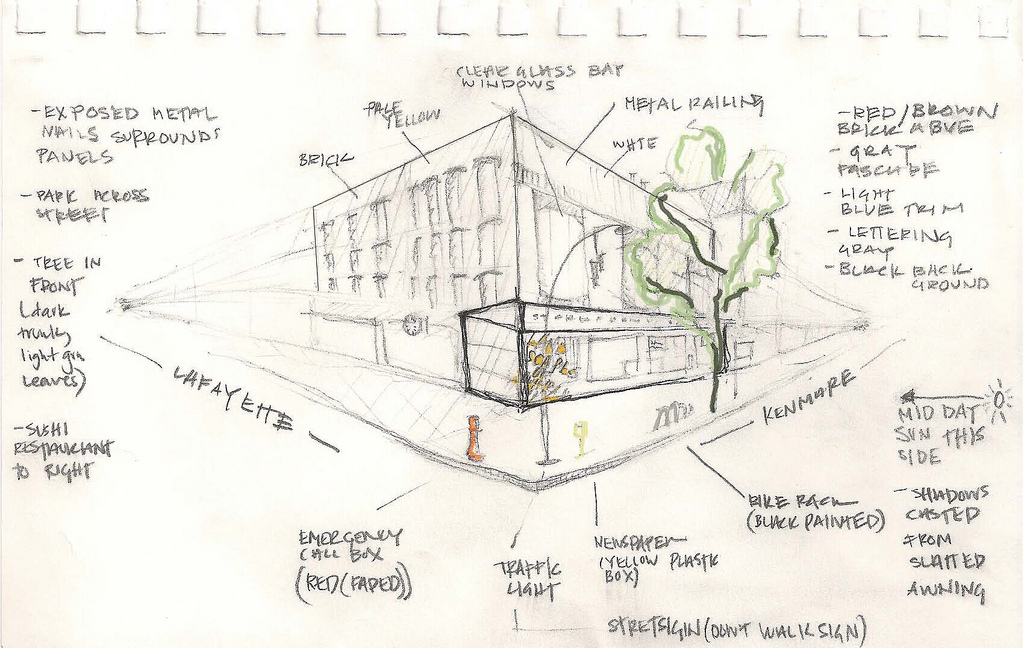 CLEAR GLASS BAY
WINDOWS
PALE
YELLOW
METAL RAILING
BRICK
WHTE
-EXPOSED METAL
NAILS SURROUNDS
PANELS
-PARK ACROSS
STREET
- TREE IN
FRONT
(dark
trunk,
light grn
leaves)
-SUSHI
RESTAURANT
TO RIGHT
-RED/BROWN
BRICK ABVE
-GRAY
-LIGHT
BLUE TRIM
-LETTERING
GRAY
-BLACK BACK
GROUND
LAFAYETTE
KENMARE
MID DAY
SUN THIS
SIDE
-SHADOWS
CASTED
FROM
SLATTED
AWNING
BIKE RACK
(BLACK PAINTED)
EMERGENCY
CALL BOX
(RED (FADED))
TRAFFIC
LIGHT
NEWSPAPER
(YELLOW PLASTIC
BOX)
STRETSIGIN (DON'T WALK SIGN)